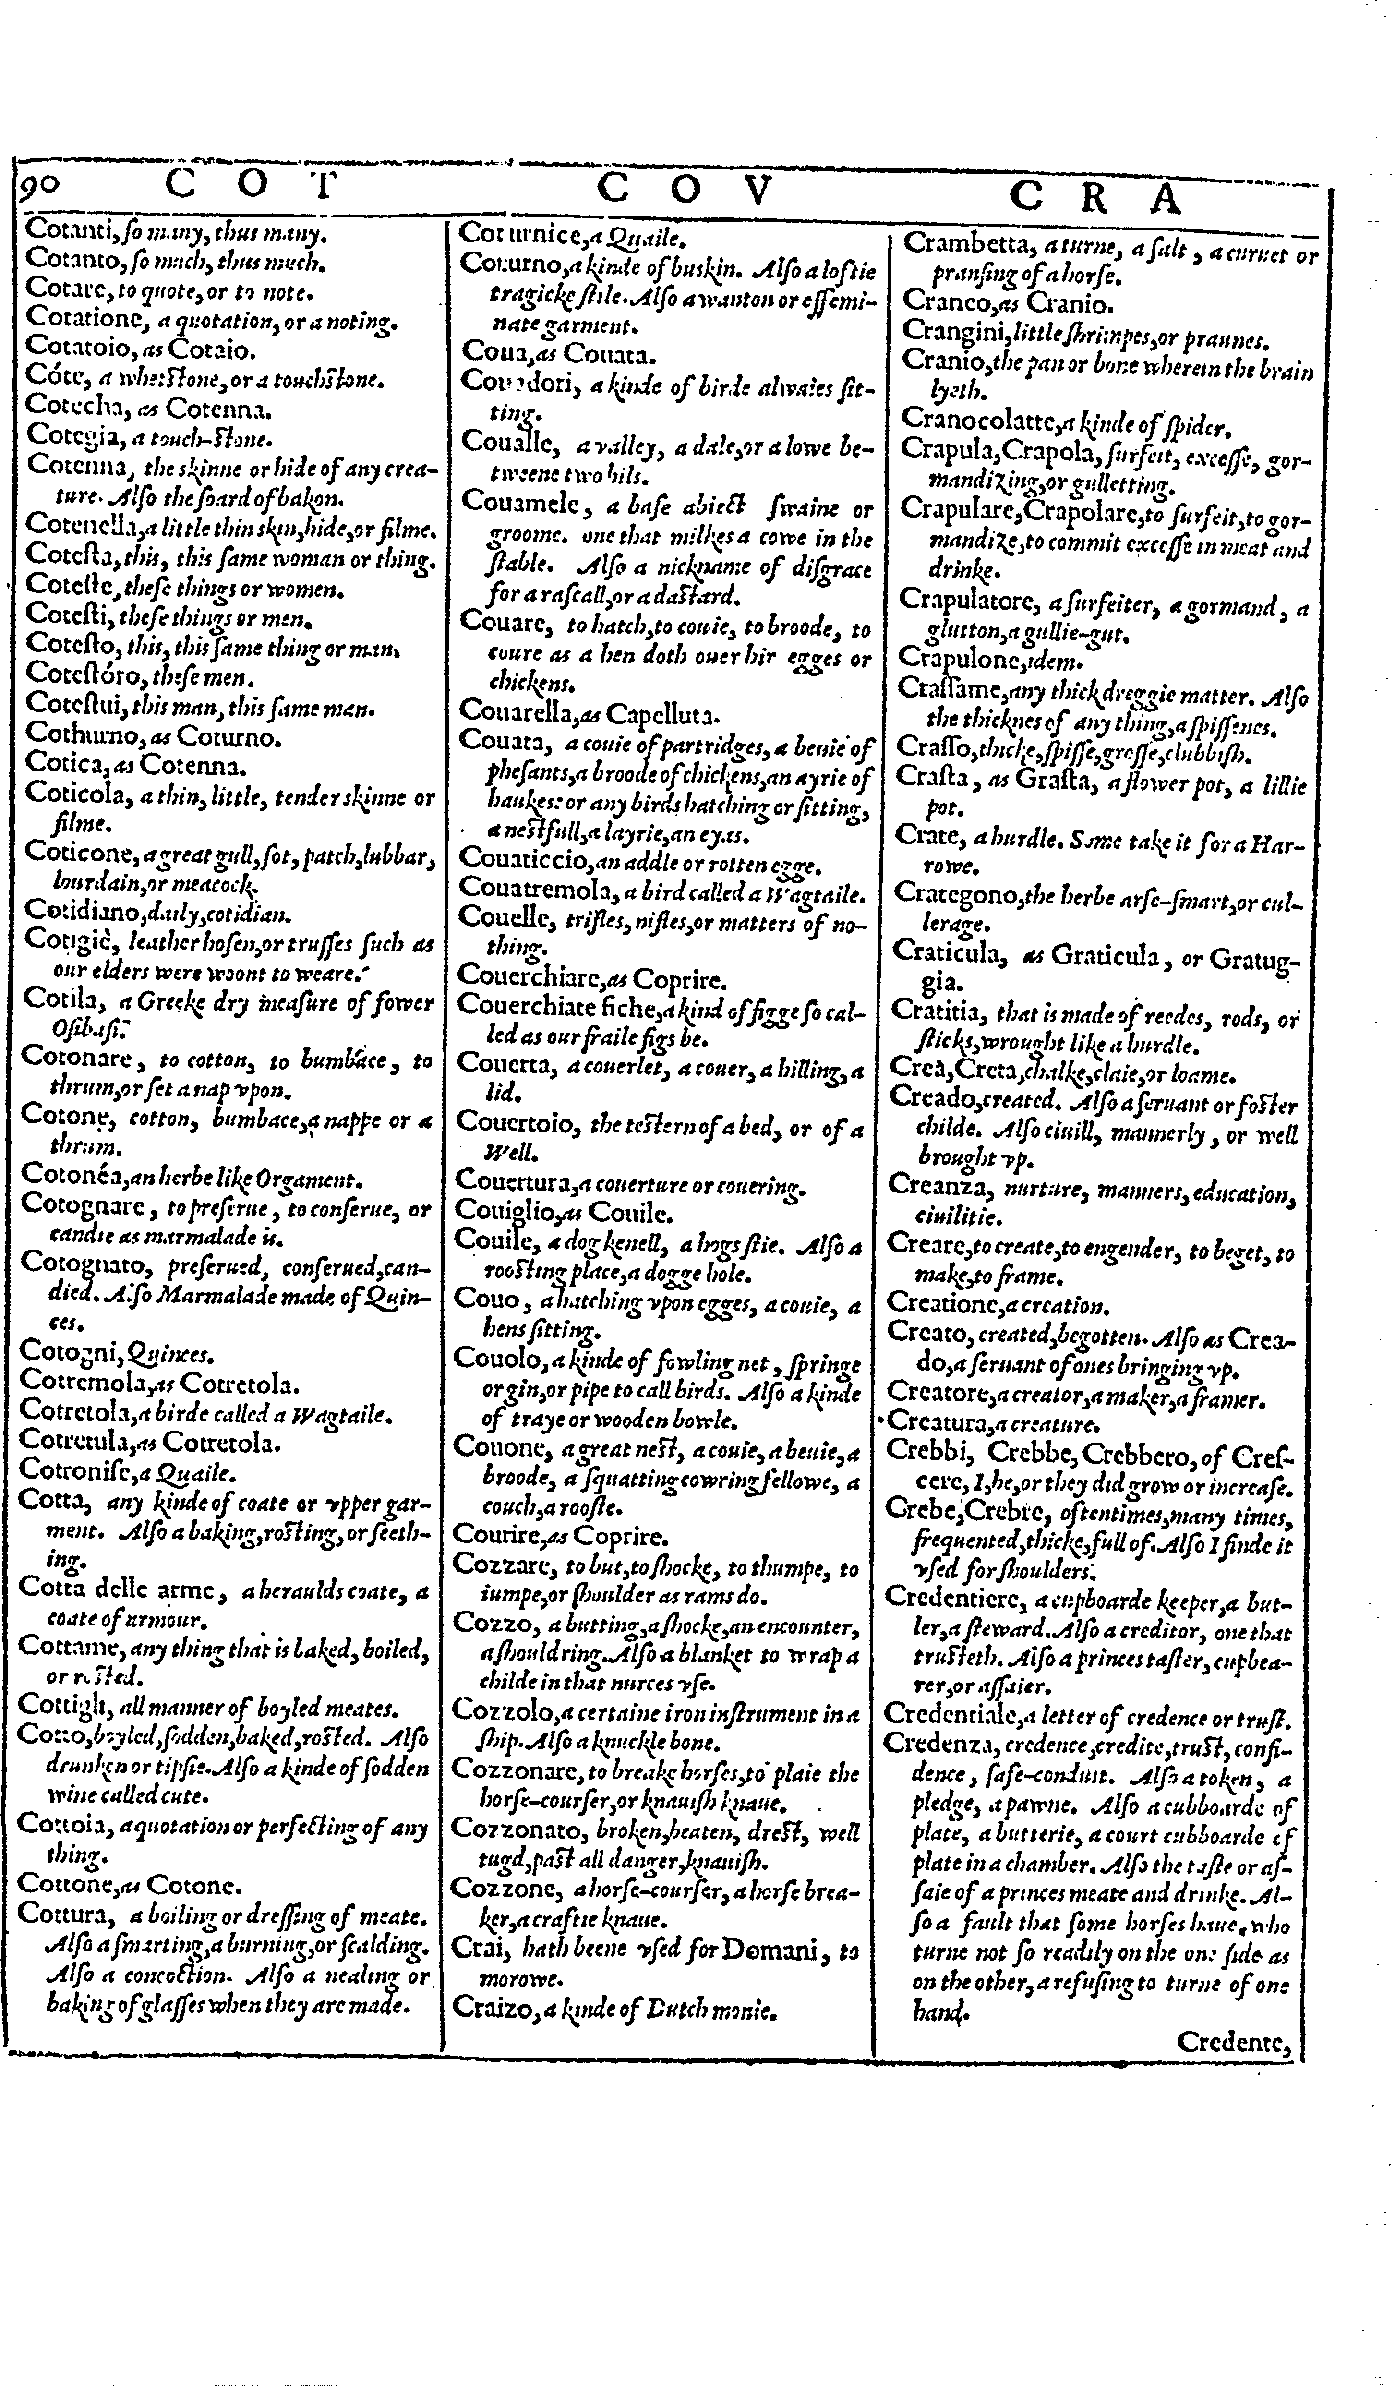 90 COT COV CRA
Cotanti, ſo many, thus many.
Cotanto, ſo much, thus much.
Cotare, to quote, or to note.
Cotatione, a quotation, or a noting.
Cotatoio, as Cotaio.
Cóte, a whetſtone, or a touchſtone.
Cotecha, as Cotenna.
Cotegia, a touch-ſtone.
Cotenna, the skinne or hide of any crea-
ture. Alſo the ſoard of bakon.
Cotenella, a little thin skin, hide, or filme.
Coteſta, this, this ſame woman or thing.
Coteſte, theſe things or women.
Coteſti, theſe things or men.
Coteſto, this, this ſame thing or man.
Coteſtóro, theſe men.
Coteſtui, this man, this ſame man.
Cothurno, as Coturno.
Cotica, as Cotenna.
Coticola, a thin, little, tender skinne or
filme.
Coticone, a great gull, ſot, patch, lubbar,
lourdain, or meacock.
Cotidiano, daily, cotidian.
Cotigiè, leather hoſen, or truſſes ſuch as
our elders were woont to weare.
Cotila, a Greeke dry meaſure of fower
Oſibaſi.
Cotonare, to cotton, to bumbace, to
thrum, or ſet a nap vpon.
Cotone, cotton, bumbace, a nappe or a
thrum.
Cotonéa, an herbe like Organient.
Cotognare, to preſerue, to conſerue, or
candie as marmalade is.
Cotognato, preſerued, conſerued, can-
died. Alſo Marmalade made of Quin-
ces.
Cotogni, Quinces.
Cotremola, as Cotretola.
Cotretola, a birde called a Wagtaile.
Cotretula, as Cotretola.
Cotroniſe, a Quaile.
Cotta, any kinde of coate or vpper gar-
ment. Alſo a baking, roſting, or ſeeth-
ing.
Cotta delle arme, a heraulds coate, a
coate of armour.
Cottame, any thing that is baked, boiled,
or roſted.
Cottigli, all manner of boyled meates.
Cotto, boyled, ſodden, baked, roſted. Alſo
drunken or tipſie. Alſo a kinde of ſodden
wine called cute.
Cottoia, a quotation or perfecting of any
thing.
Cottone, as Cotone.
Cottura, a boiling or dreſſing of meate.
Alſo a ſmarting, a burning, or ſcalding.
Alſo a concoction. Alſo a nealing or
baking of glaſſes when they are made.
Coturnice, a Quaile.
Coturno, a kinde of buskin. Alſo a loftie
tragicke ſtile. Alſo a wanton or effemi-
nate garment.
Coua, as Couata.
Couadori, a kinde of birde alwaies ſit-
ting.
Coualle, a valley, a dale, or a lowe be-
tweene two hils.
Couamele, a baſe abiect ſwaine or
groome. one that milkes a cowe in the
ſtable. Alſo a nickname of diſgrace
for a raſcall, or a daſtard.
Couare, to hatch, to couie, to broode, to
coure as a hen doth ouer hir egges or
chickens.
Couarella, as Capelluta.
Couata, a couie of partridges, a beuie of
pheſants, a broode of chickens, an ayrie of
haukes: or any birds hatching or ſitting,
a neſtfull, a layrie, an eyas.
Couaticcio, an addle or rotten egge.
Couatremola, a bird called a Wagtaile.
Couelle, trifles, nifles, or matters of no-
thing.
Couerchiare, as Coprire.
Couerchiate fiche, a kind of figge ſo cal-
led as our fraile figs be.
Couerta, a couerlet, a couer, a hilling, a
lid.
Couertoio, the teſtern of a bed, or of a
Well.
Couertura, a couerture or couering.
Couiglio, as Couile.
Couile, a dog kenell, a hogs ſtie. Alſo a
rooſting place, a dogge hole.
Couo, a hatching vpon egges, a couie, a
hens ſitting.
Couolo, a kinde of fowling net, ſpringe
or gin, or pipe to call birds. Alſo a kinde
of traye or wooden bowle.
Couone, a great neſt, a couie, a beuie, a
broode, a ſquatting cowring fellowe, a
couch, a rooſte.
Courire, as Coprire.
Cozzare, to but, to ſhocke, to thumpe, to
iumpe, or ſhoulder as rams do.
Cozzo, a butting, a ſhocke, an encounter,
a ſhouldring. Alſo a blanket to wrap a
childe in that nurces vſe.
Cozzolo, a certaine iron inſtrument in a
ſhip. Alſo a knuckle bone.
Cozzonare, to breake horſes, to plaie the
horſe-courſer, or knauiſh knaue.
Cozzonato, broken, beaten, dreſt, well
tugd, paſt all danger, knauiſh.
Cozzone, a horſe-courſer, a horſe brea-
ker, a craftie knaue.
Crai, hath beene vſed for Domani, to
morowe.
Craizo, a kinde of Dutch monie.
Crambetta, a turne, a ſalt, a curuet or
pranſing of a horſe.
Craneo, as Cranio.
Crangini, little ſhrimpes, or praunes.
Cranio, the pan or bone wherein the brain
lyeth.
Cranocolatte, a kinde of ſpider.
Crapula, Crapola, ſurfeit, exceſſe, gor-
mandizing, or gulletting.
Crapulare, Crapolare, to ſurfeit, to gor-
mandize, to commit exceſſe in meat and
drinke.
Crapulatore, a ſurfeiter, a gormand, a
glutton, a gullie-gut.
Crapulone, idem.
Craſſame, any thick dreggie matter. Alſo
the thicknes of any thing, a ſpiſſenes.
Craſſo, thicke, ſpiſſe, groſſe, clubbiſh.
Craſta, as Graſta, a flower pot, a lillie
pot.
Crate, a hurdle. Some take it for a Har-
rowe.
Crategono, the herbe arſe-ſmart, or cul-
lerage.
Craticula, as Graticula, or Gratug-
gia.
Cratitia, that is made of reedes, rods, or
ſticks, wrought like a hurdle.
Crea, Creta, chalke, claie, or loame.
Creado, created. Alſo a ſeruant or foſter
childe. Alſo ciuill, mannerly, or well
brought vp.
Creanza, nurture, manners, education,
ciuilitie.
Creare, to create, to engender, to beget, to
make, to frame.
Creatione, a creation.
Creato, created, begotten. Alſo as Crea-
do, a ſeruant of ones bringing vp.
Creatore, a creator, a maker, a framer.
Creatura, a creature.
Crebbi, Crebbe, Crebbero, of Creſ-
cere, I, he, or they did grow or increaſe.
Crebe, Crebre, oftentimes, many times,
frequented, thicke, full of. Alſo I finde it
vſed for ſhoulders.
Credentiere, a cupboarde keeper, a but-
ler, a ſteward. Alſo a creditor, one that
truſteth. Alſo a princes taſter, cupbea-
rer, or aſſaier.
Credentiale, a letter of credence or truſt.
Credenza, credence, credite, truſt, confi-
dence, ſafe-conduit. Alſo a token, a
pledge, a pawne. Alſo a cubboarde of
plate, a butterie, a court cubboarde of
plate in a chamber. Alſo the taſte or aſ-
ſaie of a princes meate and drinke. Al-
ſo a fault that ſome horſes haue, who
turne not ſo readily on the one ſide as
on the other, a refuſing to turne of one
hand.
Credente,